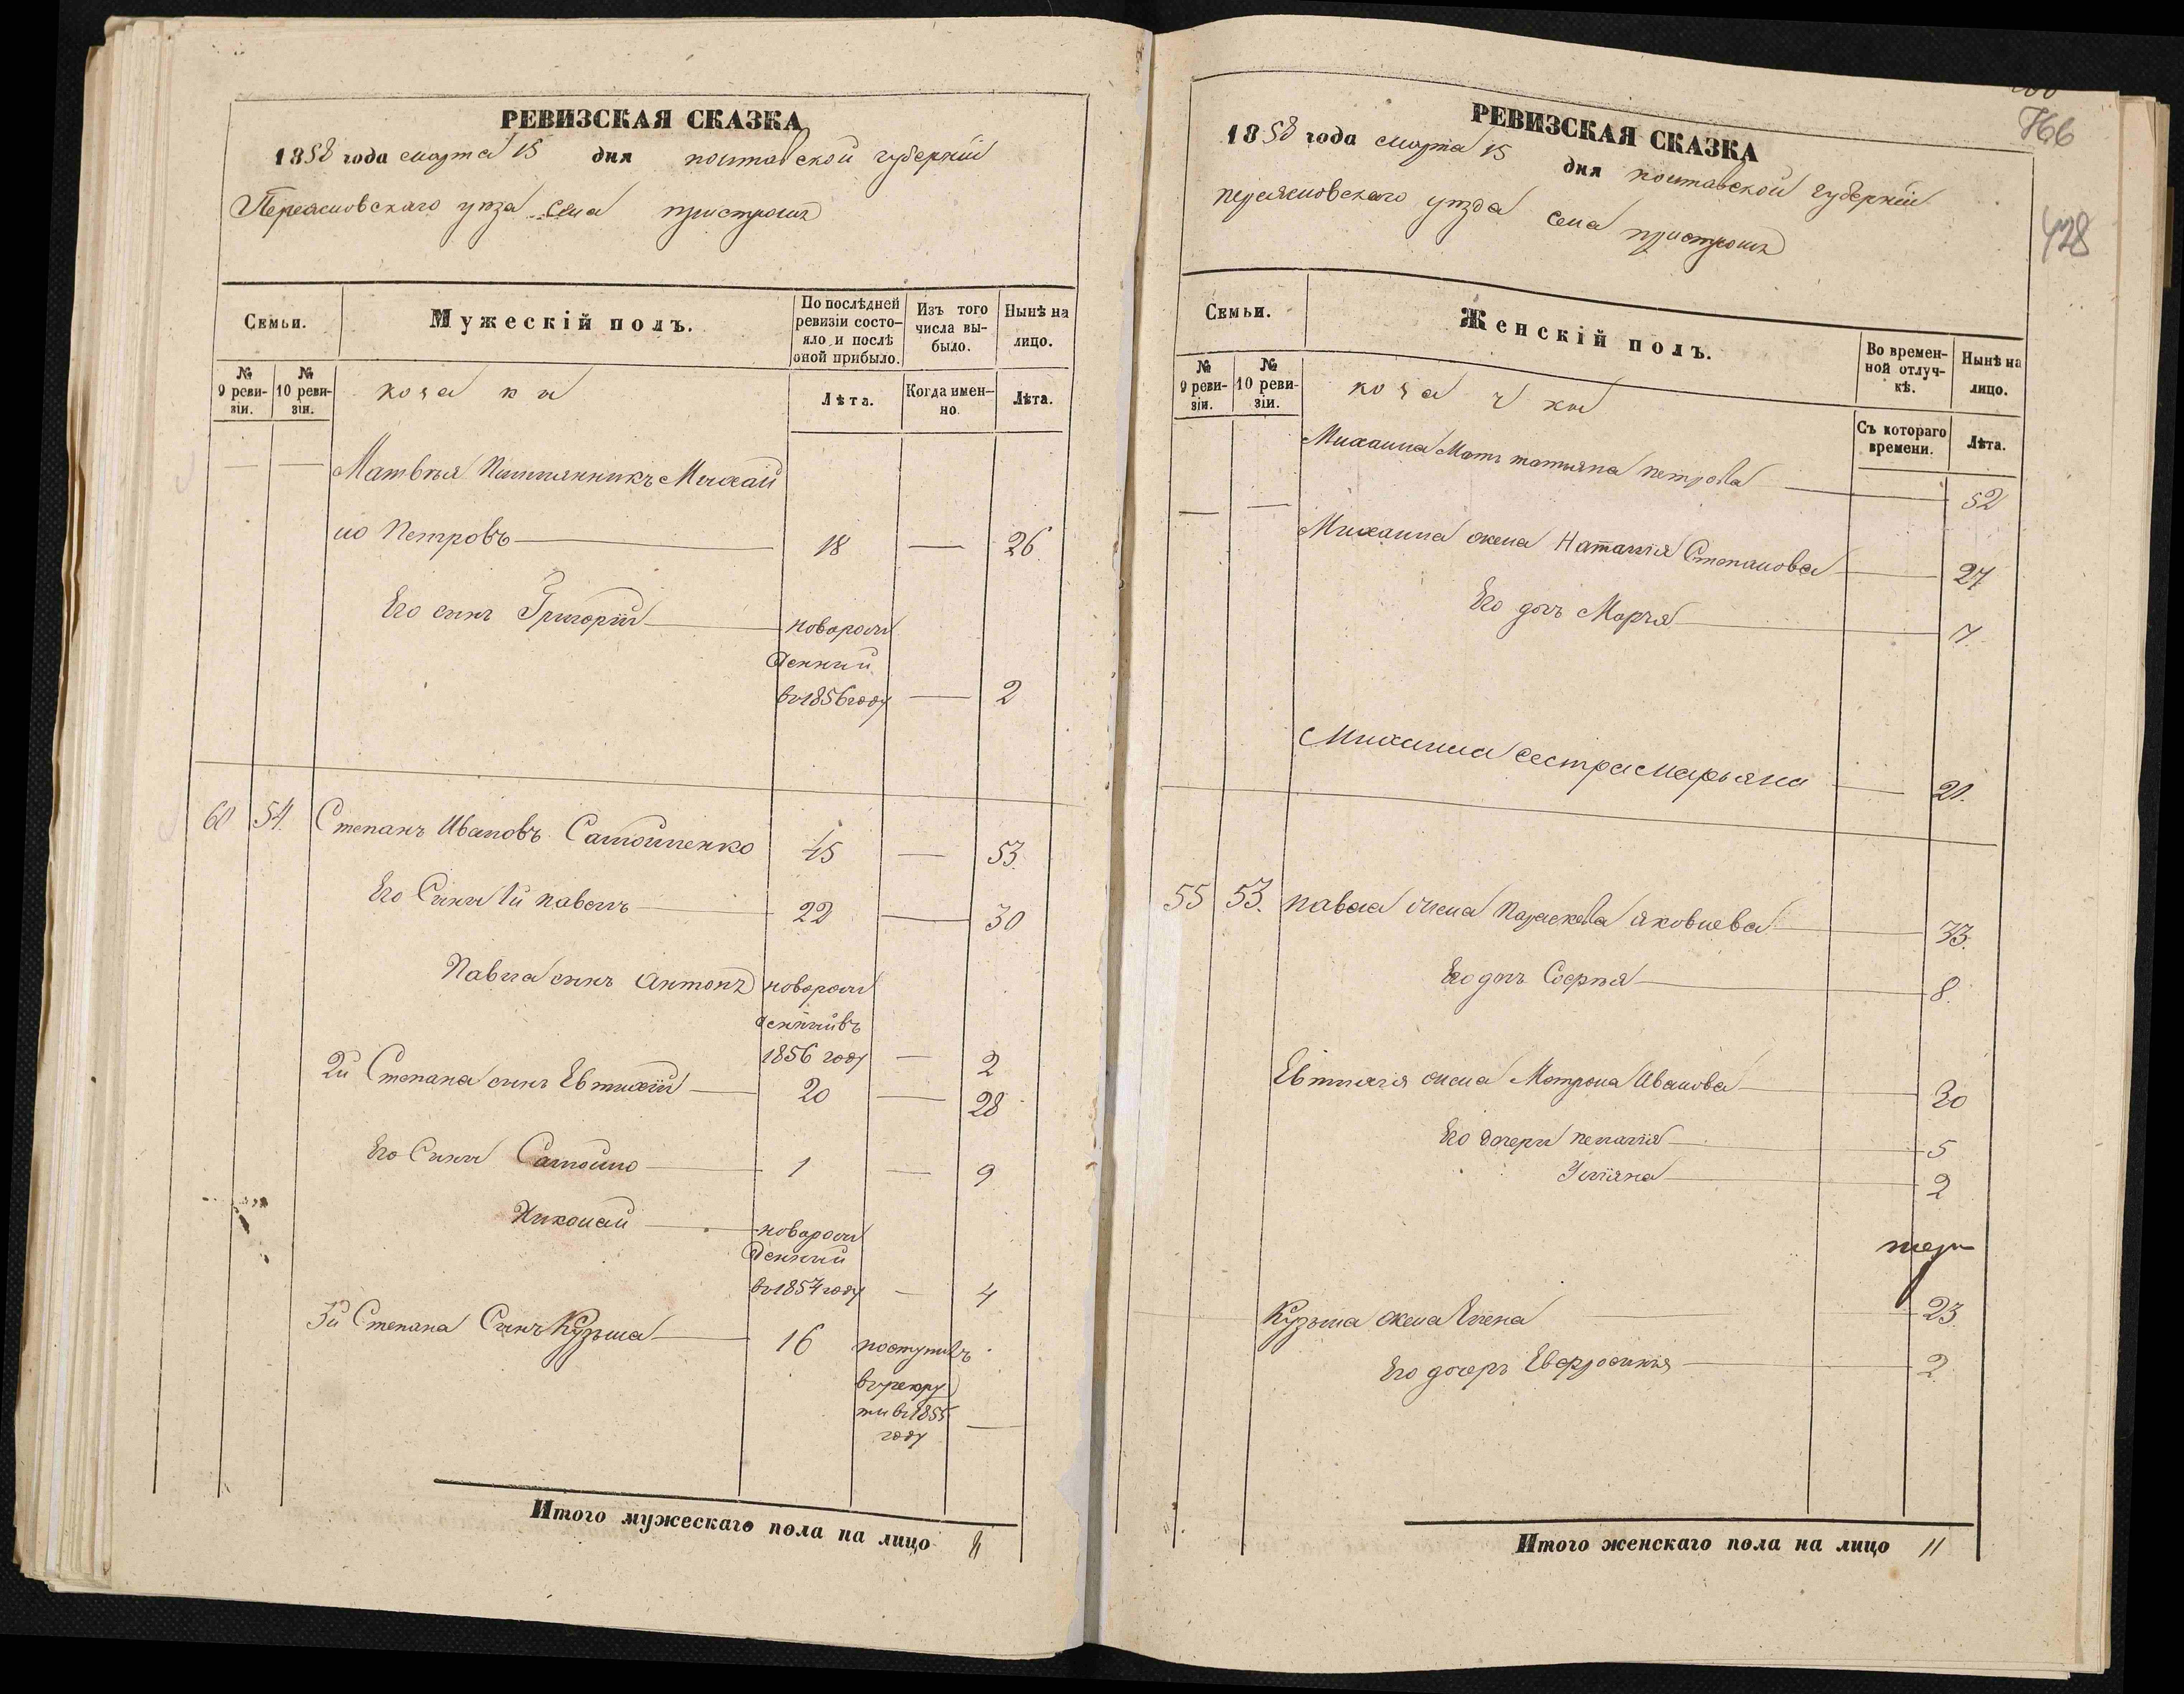 РЕВИЗСКАЯ СКАЗКА
1858 года марта 15 дня полтавской губерніи
Переясловскаго уѣзда села пристромъ
Семьи.
Мужескій полъ.
По послѣдней ревизіи состо-
яло и послѣ
оной прибыло.
Изъ того
числа вы-
было.
Нынѣ на
лицо.
№
9 реви-
зіи.
№
10 реви-
зіи.
козаки
Лѣта.
Когда имен-
но.
Лѣта.
— — Матвѣя Племянникъ Михай
ло Петровъ 18 — 26.
Его сынъ Григорій новорож
денний
въ 1856 году — 2
60 54. Степанъ Ивановъ Самойленко 45 — 53.
Его Сыны 1й павелъ 22 — 30
Павла сынъ Антонъ новорож
денний въ
1856 году — 2
2й Степана сынъ Евтихій 20 — 28
Его Сыны Самойло 1 — 9
Николай новорож
денний
въ 1854 году — 4
3й Степана Сынъ Кузьма 16 поступилъ
въ рекру
ти въ 1855
году —
Итого мужескаго пола на лицо 8
РЕВИЗСКАЯ СКАЗКА
1858 года марта 15 дня полтавской губерніи
переясловскаго уѣзда села пристромъ
766
428
Семьи.
Женскій полъ.
Во времен-
ной отлуч-
кѣ.
Нынѣ на
лицо.
№
9 реви-
зіи.
№
10 реви-
зіи.
козачки
Съ котораго
времени.
Лѣта.
Михаила Мать татьяна петрова 52
— — Михаила жена Наталія Степанова 27
Его дочь Марья 7.
Михаила сестра марьяна 21.
55 53. павла жена Параскева яковлева 33.
Его дочь Софья 8.
Евтихія жена Матрона Иванова 30
Его дочери пелагія 5
Уліяна 2
Кузьма жена Елена 23.
Его дочерь Евфросинья 2
Итого женскаго пола на лицо 11